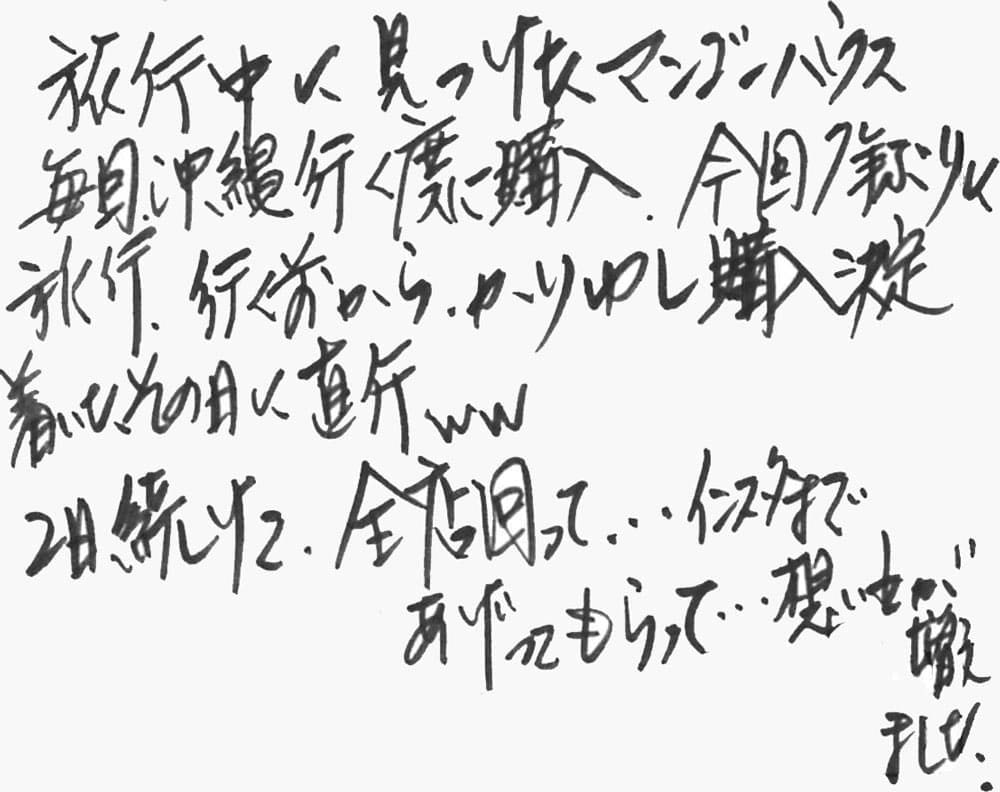 旅行中に見つけたマンゴーハウス
毎回、沖縄行く度に購入. 今回7年ぶりに
旅行. 行く前から、かりゆし購入決定
着いた、その日に直行ww
2日続けて. 全店回って...インスタまで
あげてもらって...想い出が
増え
ました.